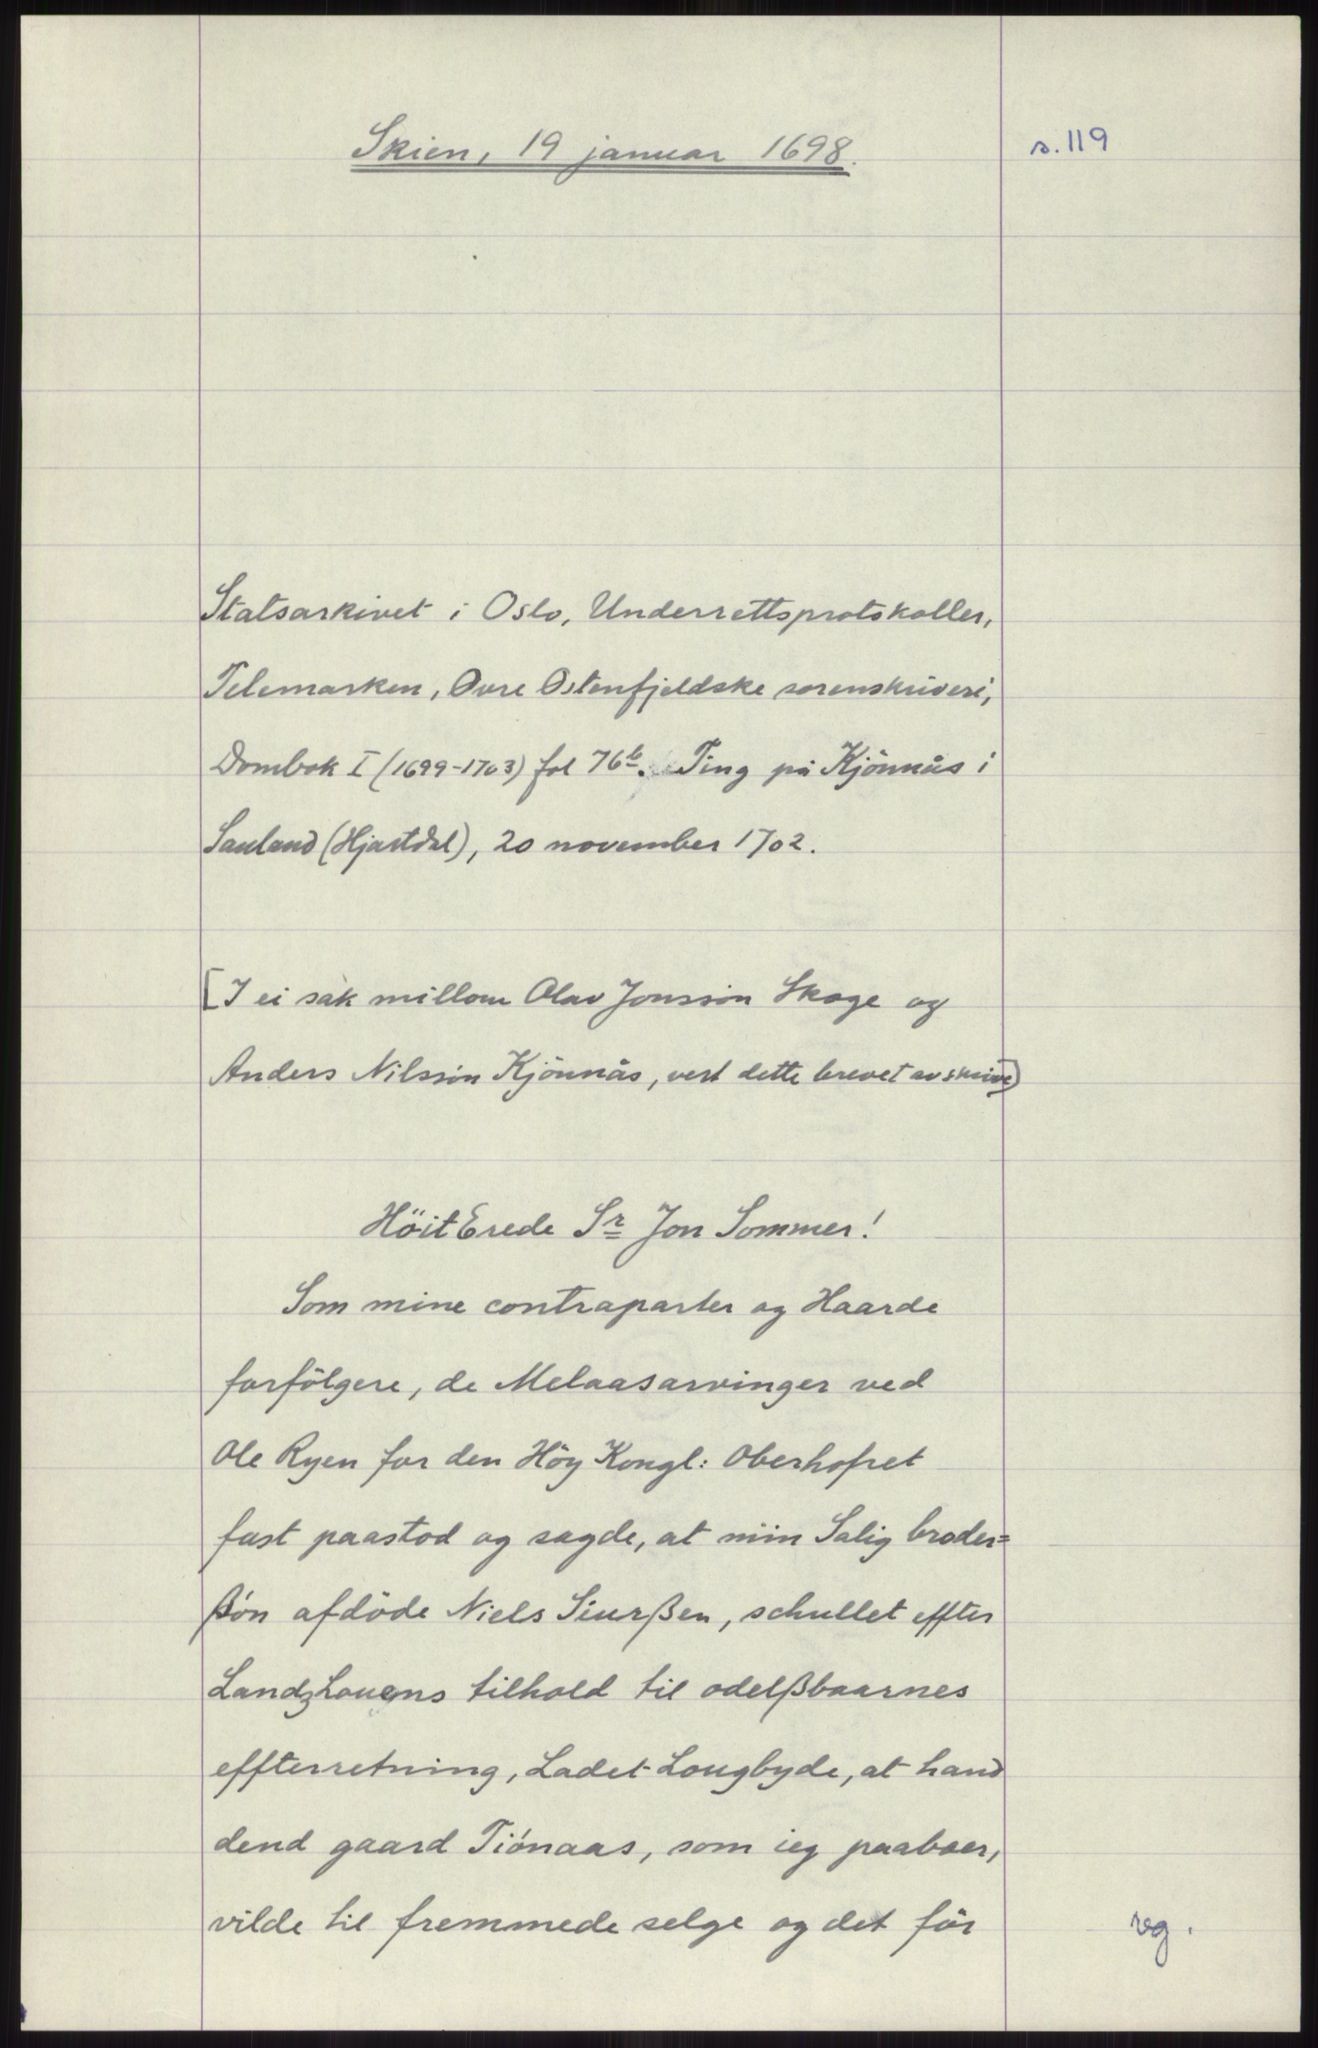 Skien, 19 januar 1698.
s. 119
Statsarkivet i Oslo, Underrettsprotokoller,
Telemarken, Øvre Østenfjeldske sorenskriveri,
Dombok I (1699-1703) fol 76b. Ting på Kjönnås i
Sauland (Hjartdal), 20 november 1702.
[I ei sak millom Olav Jonssön Skoge og
Anders Nilssön Kjönnås, vert dette brevet avskrive]
HöitErede Sr Jon Sommer!
Som mine contraparter og Haarde
forfölgere, de Melaasarvinger ved
Ole Ryen for den Höy Kongl: Oberhofret
fast paastod og sagde, at miin Salig broder=
ßön afdöde Niels Siurßen, schullet effter
LandzLouens tilhold til odelßbaarnes
effterretning, Ladet Lougbyde, at hand
dend gaard Tiönaas, som ieg paaboer,
vilde til fremmede selge og det för
rg.